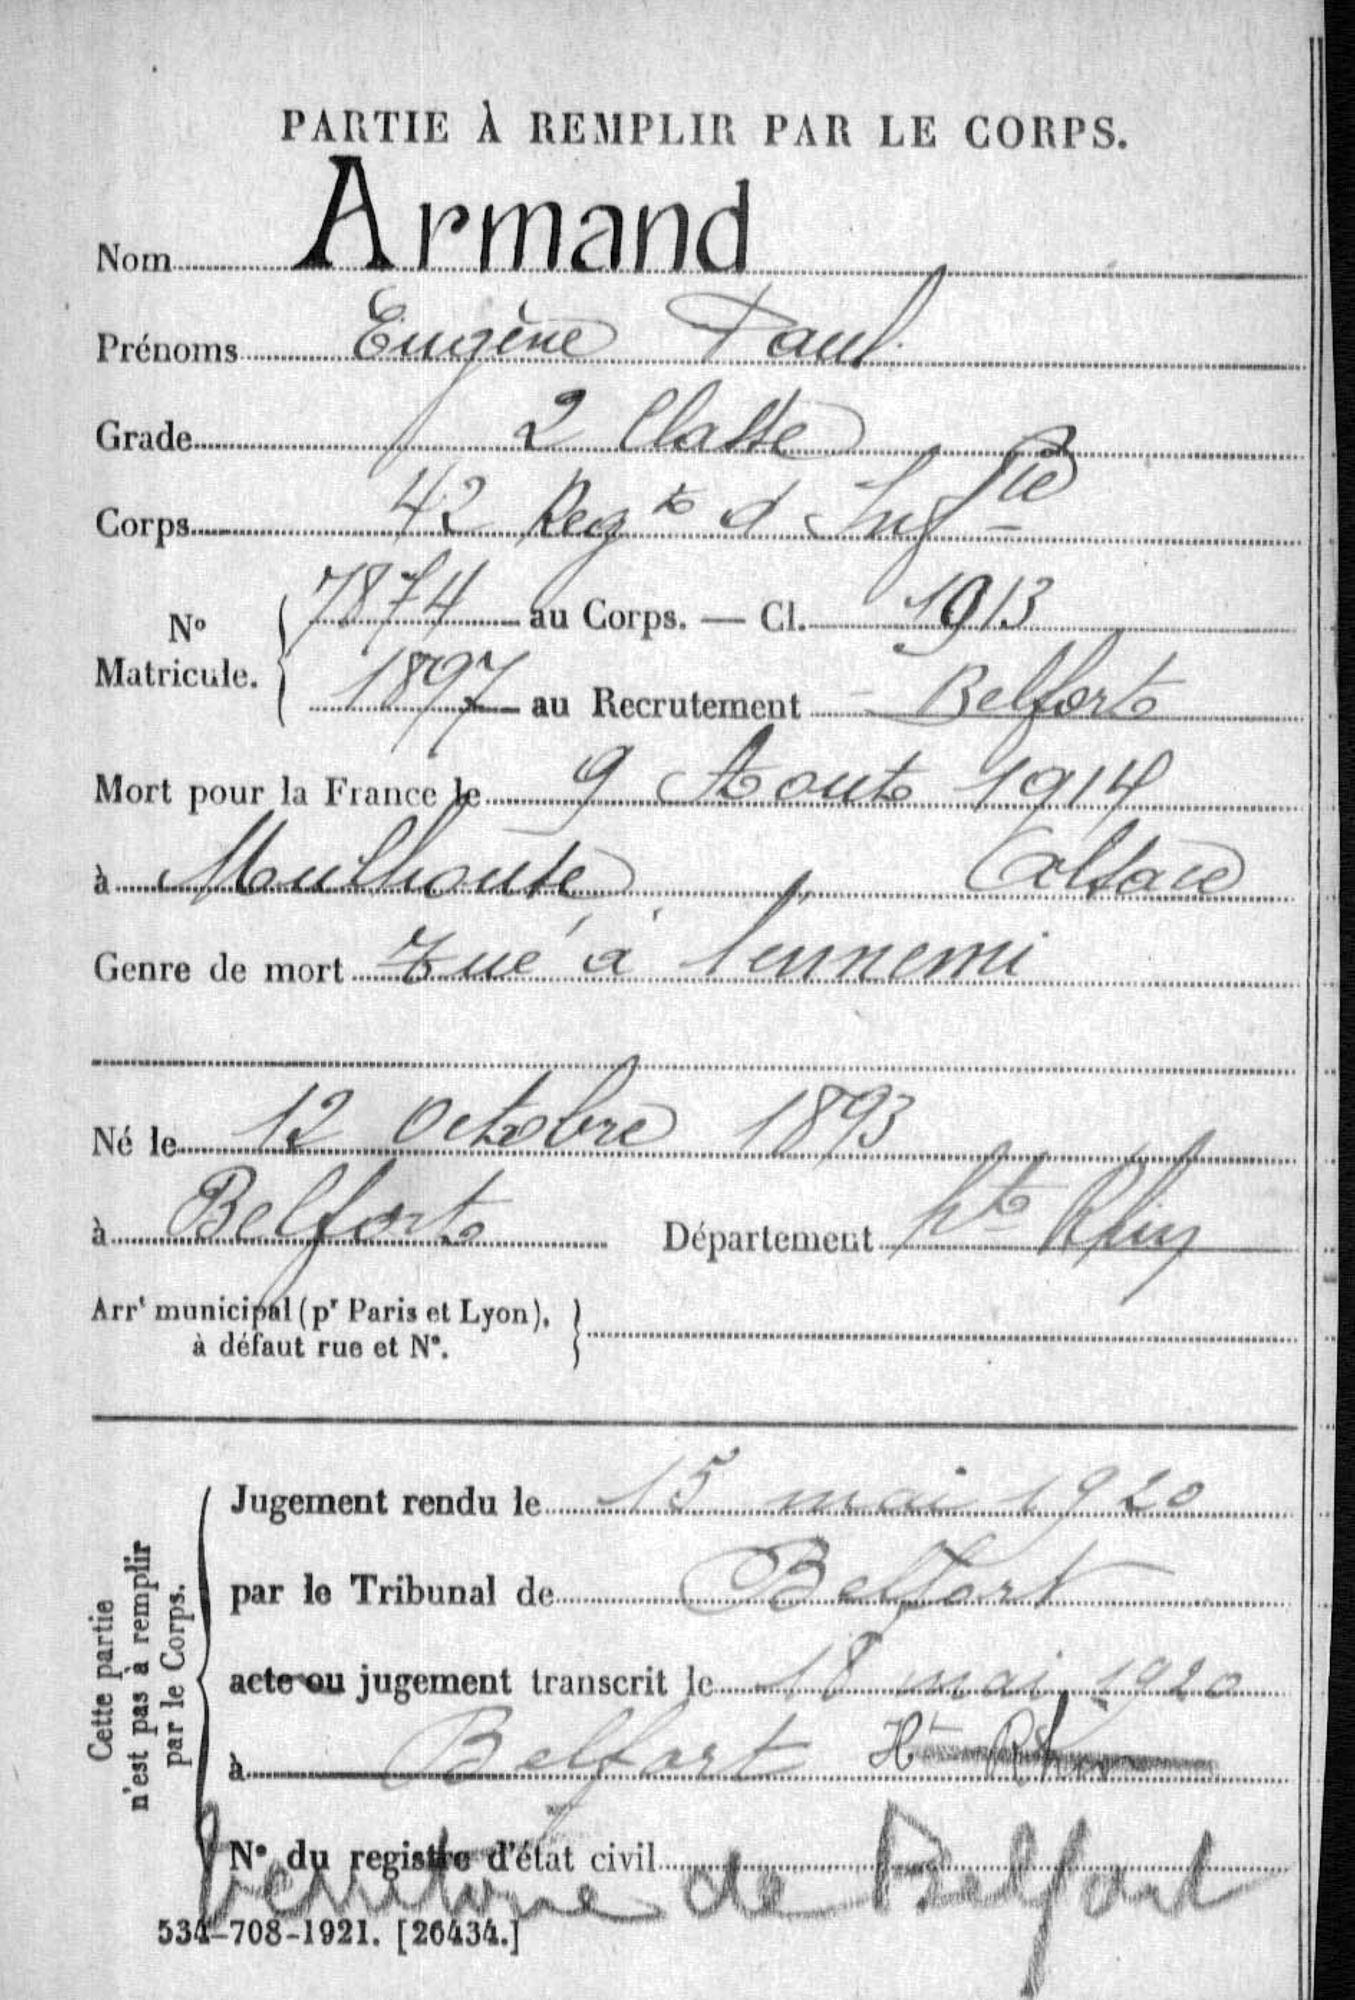 PARTIE À REMPLIR PAR LE CORPS.
Nom Armand
Prénoms Eugène Paul
Grade 2 Classe
Corps 42 Reg.t d'Inf.ie
N° Matricule. 7874 au Corps. — Cl. 1913
1897 au Recrutement Belfort
Mort pour la France le 9 Aout 1914
à Mulhouse (Alsace)
Genre de mort Tué à l'ennemi
Né le 12 Octobre 1893
à Belfort Département Ht Rhin
Arrt municipal (pr Paris et Lyon),
à défaut rue et N°.
Cette partie
n'est pas à remplir
par le Corps.
Jugement rendu le 15 mai 1920
par le Tribunal de Belfort
acte ou jugement transcrit le 18 mai 1920
à Belfort Ht Rhin
N° du registre d'état civil
territoire de Belfort
534-708-1921. [26434.]